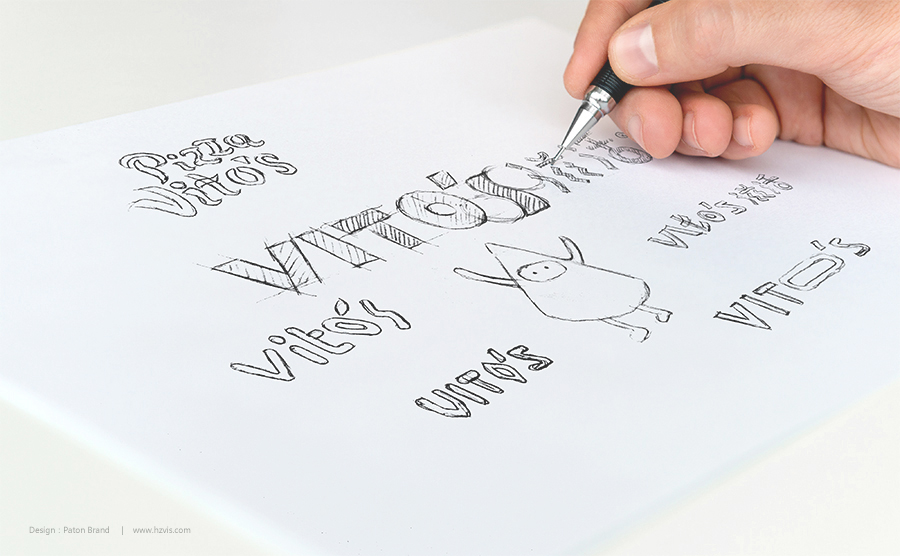 Pizza
Vito's
VITO'S
Vito's
VITO'S
Vito's
VITO'S
Design : Paton Brand | www.hzvis.com